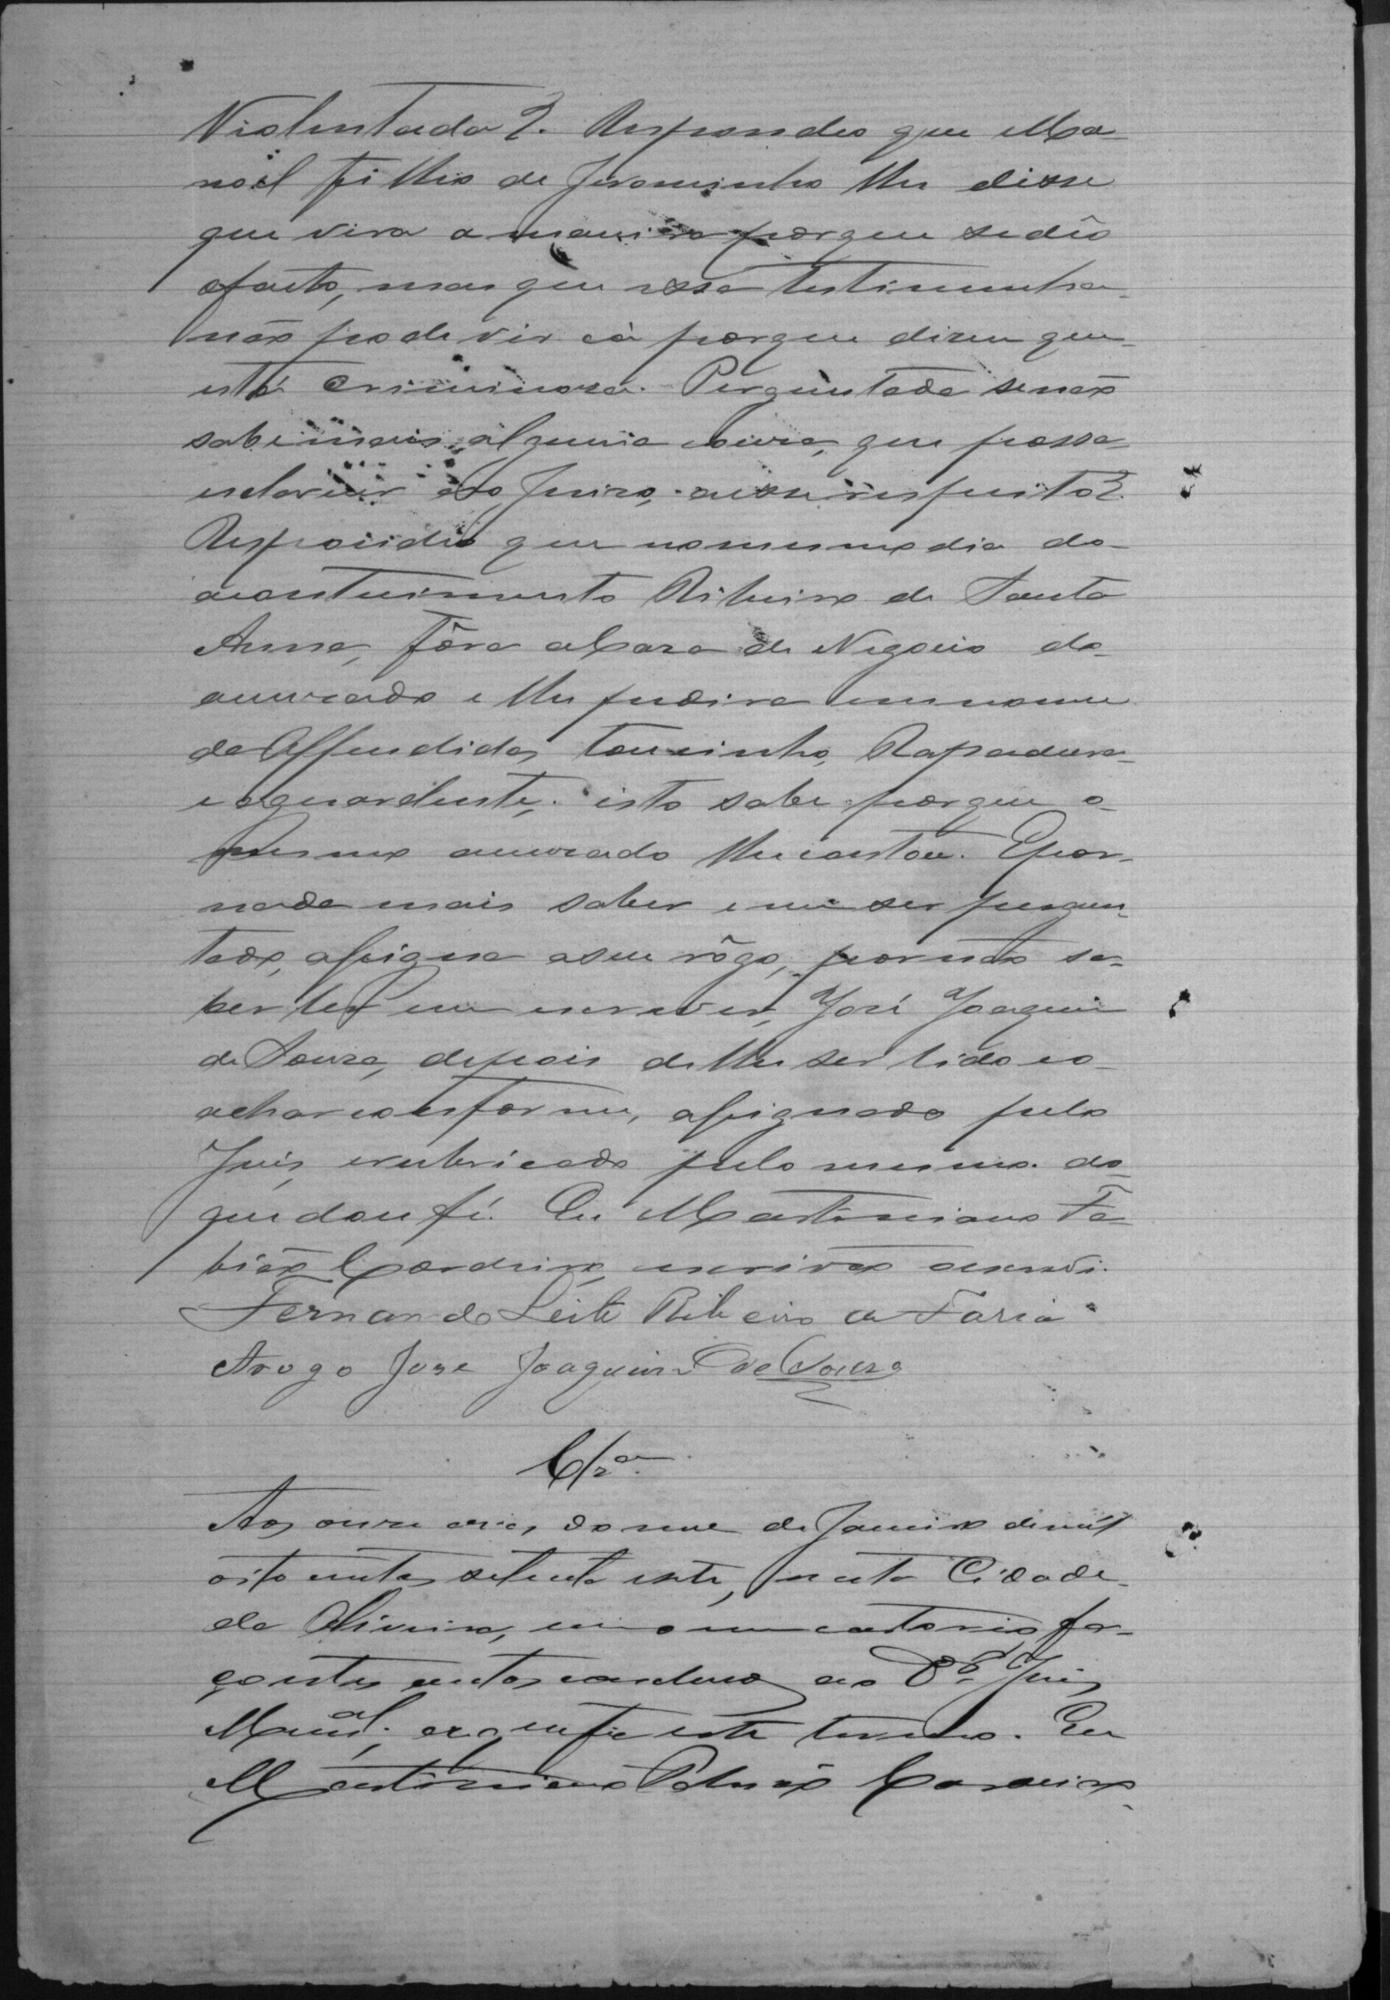 Violentada?. Respondeo que Ma-
noel filho de Jeronimho lhe disse
que vira a maneira porque se dêo
o facto, mas que essa testimunha
não pode vir cá porque dizem que
está criminoza. Perguntado se não
sabe mais alguma couza, que possa
esclarecer ao Juizo, a esse respeito?
Respondeo que no mesmo dia do
acontecimento Ribeiro de Santa
Anna, fôra a Caza de Negocio do
accuzado e lhe pedira em nome
da Offendida, toucinho, Rapadura
e aguardente, isto sabe porque o
mesmo accuzado lhe contou. E por
nada mais saber e nem ser pergun-
tado, assigna a seu rôgo, por não sa-
ber ler nem escrever, José Joaquim
de Souza, depois de lhe ser lido e o
achar conforme, assignado pelo
Juis, e rubricado pelo mesmo. do
que dou fé. Eu Martiniano Fa-
bião Cordeiro, escrivão escrevi.
Fernando Leite Ribeiro de Faria
Arogo Jose Joaquim de Souza
Clzᵃᵐ.
Aos onze dias do mez de Janeiro de mil
oito centos setenta e sete, nesta Cidade
de Oliveira, em o meu cartorio fa-
ço estes autos concluzos ao Dᵒʳ Juis
Munᵃˡ. do que fiz este termo. Eu
Martiniano Fabião Cordeiro